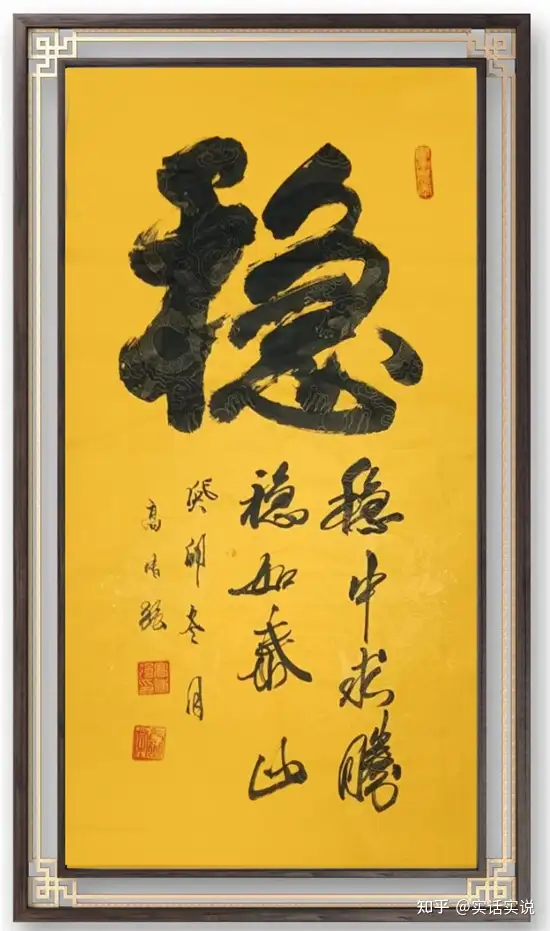 稳
稳中求勝
稳如泰山
癸卯冬月
高
知乎 @实话实说